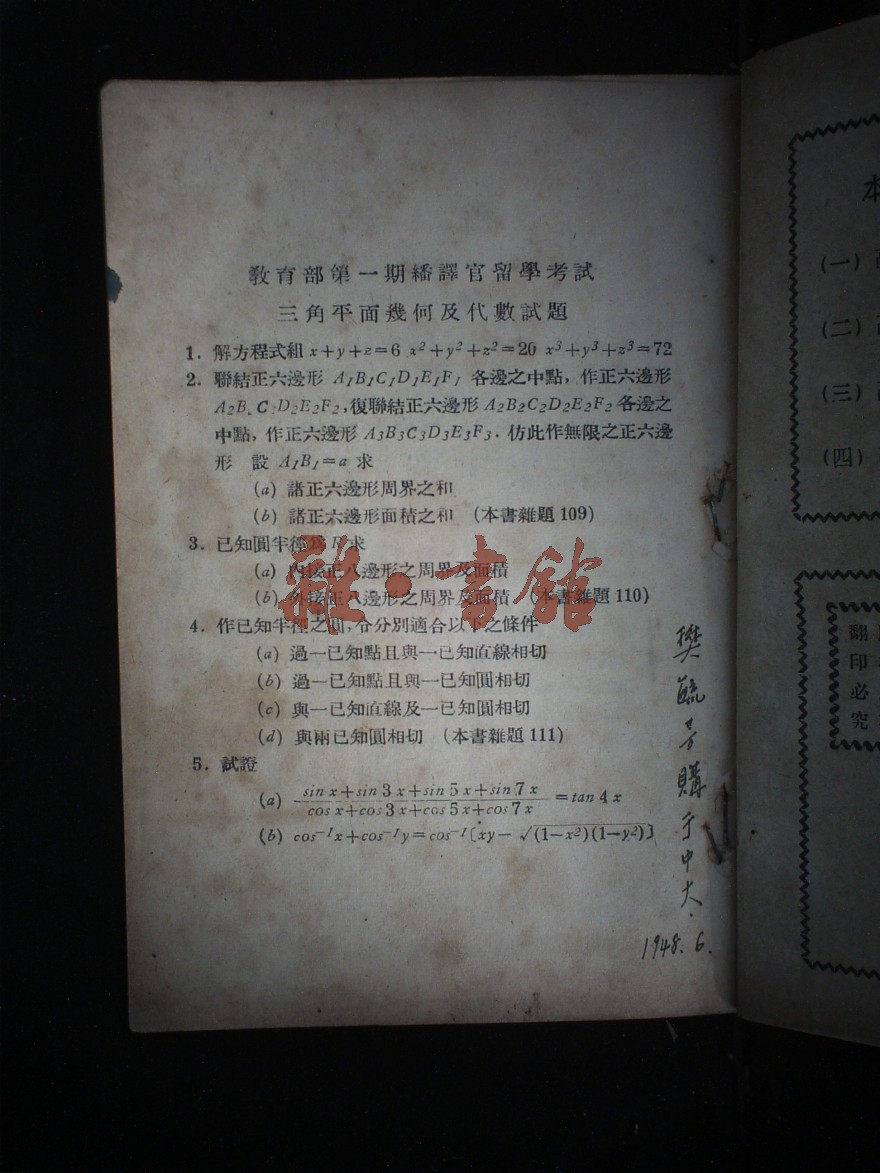 教育部第一期繙譯官留學考試
三角平面幾何及代數試題
1. 解方程式組 x+y+z=6 x²+y²+z²=20 x³+y³+z³=72
2. 聯結正六邊形 A₁B₁C₁D₁E₁F₁ 各邊之中點, 作正六邊形
A₂B₂C₂D₂E₂F₂, 復聯結正六邊形 A₂B₂C₂D₂E₂F₂ 各邊之
中點, 作正六邊形 A₃B₃C₃D₃E₃F₃. 仿此作無限之正六邊
形 設 A₁B₁=a 求
(a) 諸正六邊形周界之和
(b) 諸正六邊形面積之和 (本書雜題 109)
3. 已知圓半徑為 R 求
(a) 內接正八邊形之周界及面積
(b) 外接正八邊形之周界及面積 (本書雜題 110)
4. 作已知半徑之圓, 令分別適合以下之條件
(a) 過一已知點且與一已知直線相切
(b) 過一已知點且與一已知圓相切
(c) 與一已知直線及一已知圓相切
(d) 與兩已知圓相切 (本書雜題 111)
5. 試證
(a) (sin x+sin 3x+sin 5x+sin 7x)/(cos x+cos 3x+cos 5x+cos 7x) = tan 4x
(b) cos⁻¹x+cos⁻¹y=cos⁻¹[xy−√(1−x²)(1−y²)]
樊毓芳購于中大.
1948.6.
雜·書館
本
(一)
(二)
(三)
(四)
翻印必究